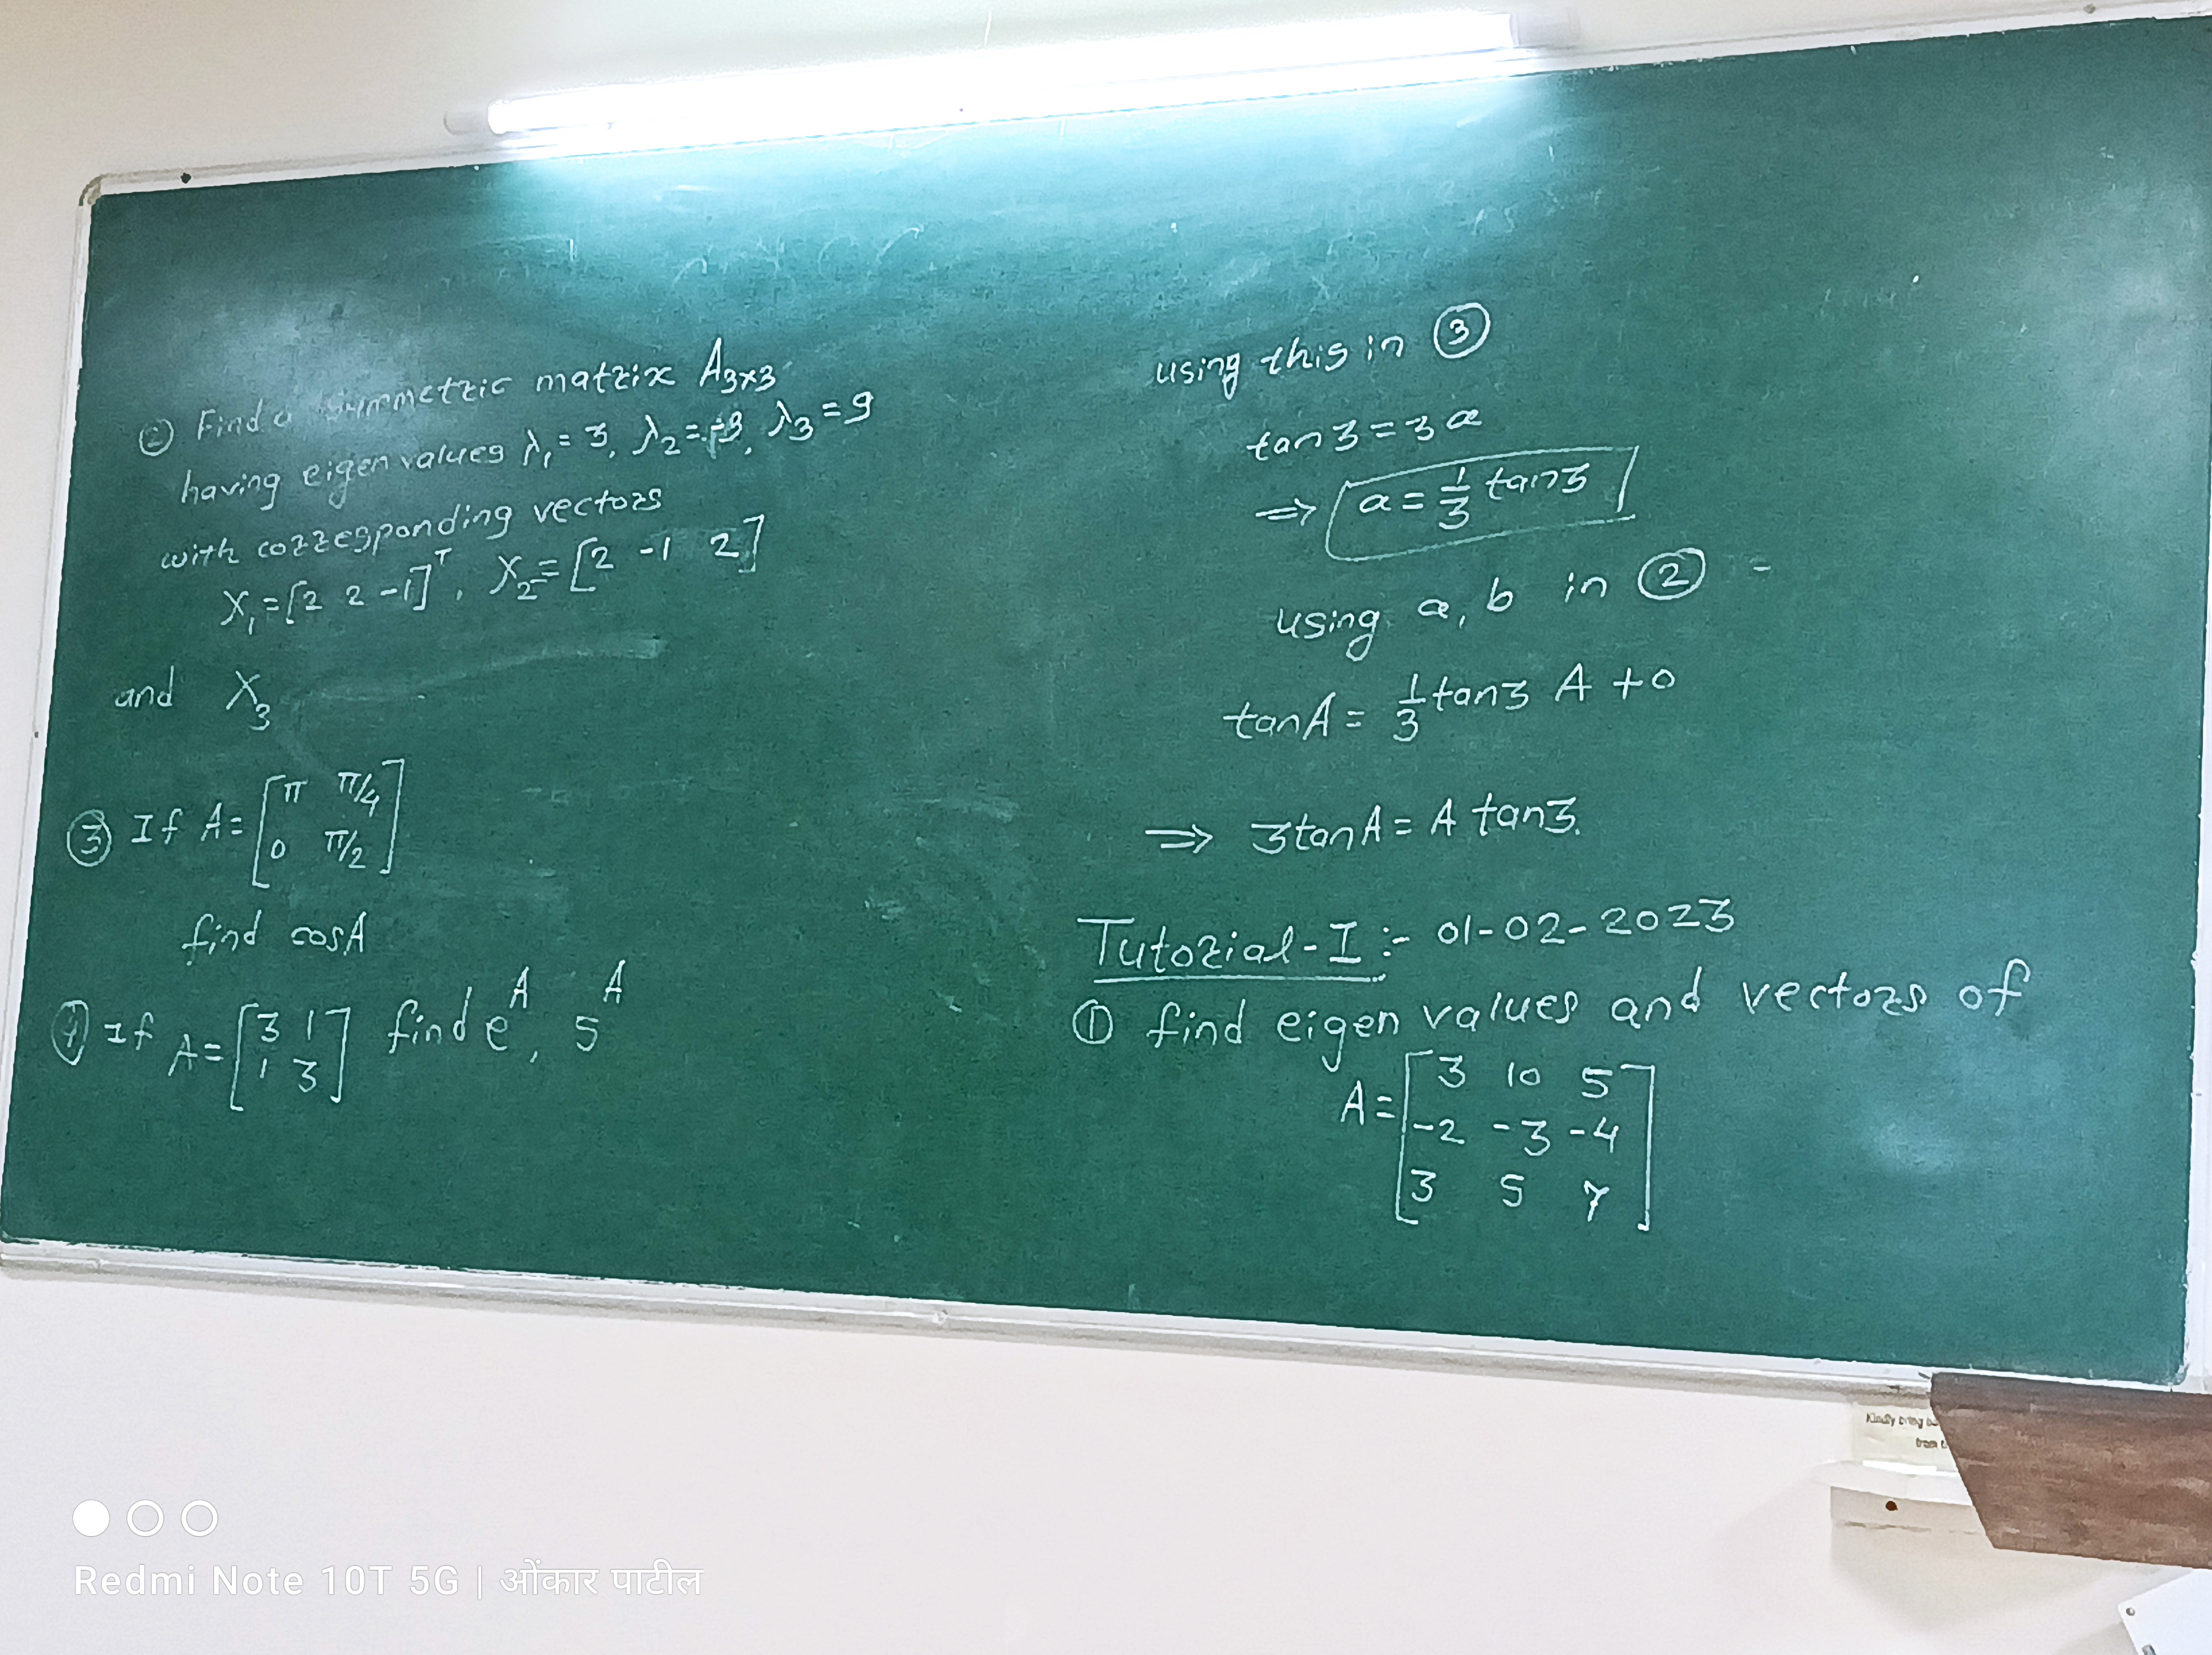 ② Find a symmetric matrix A₃ₓ₃
having eigen values λ₁ = 3, λ₂ = -9, λ₃ = 9
with corresponding vectors
X₁ = [2 2 -1]ᵀ, X₂ = [2 -1 2]
and X₃
③ If A = [π π/4
0 π/2]
find cosA
④ If A = [3 1
1 3] find eᴬ, 5ᴬ
using this in ③
tan3 = 3a
⇒ a = 1/3 tan3
using a, b in ②
tanA = 1/3 tan3 A + 0
⇒ 3tanA = A tan3.
Tutorial-I :- 01-02-2023
① find eigen values and vectors of
A = [3 10 5
-2 -3 -4
3 5 7]
Kindly bring
from
Redmi Note 10T 5G | ओंकार पाटील